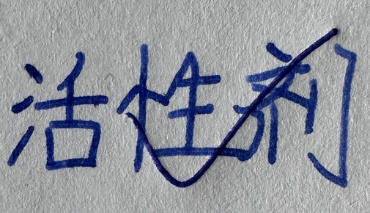 活性剂